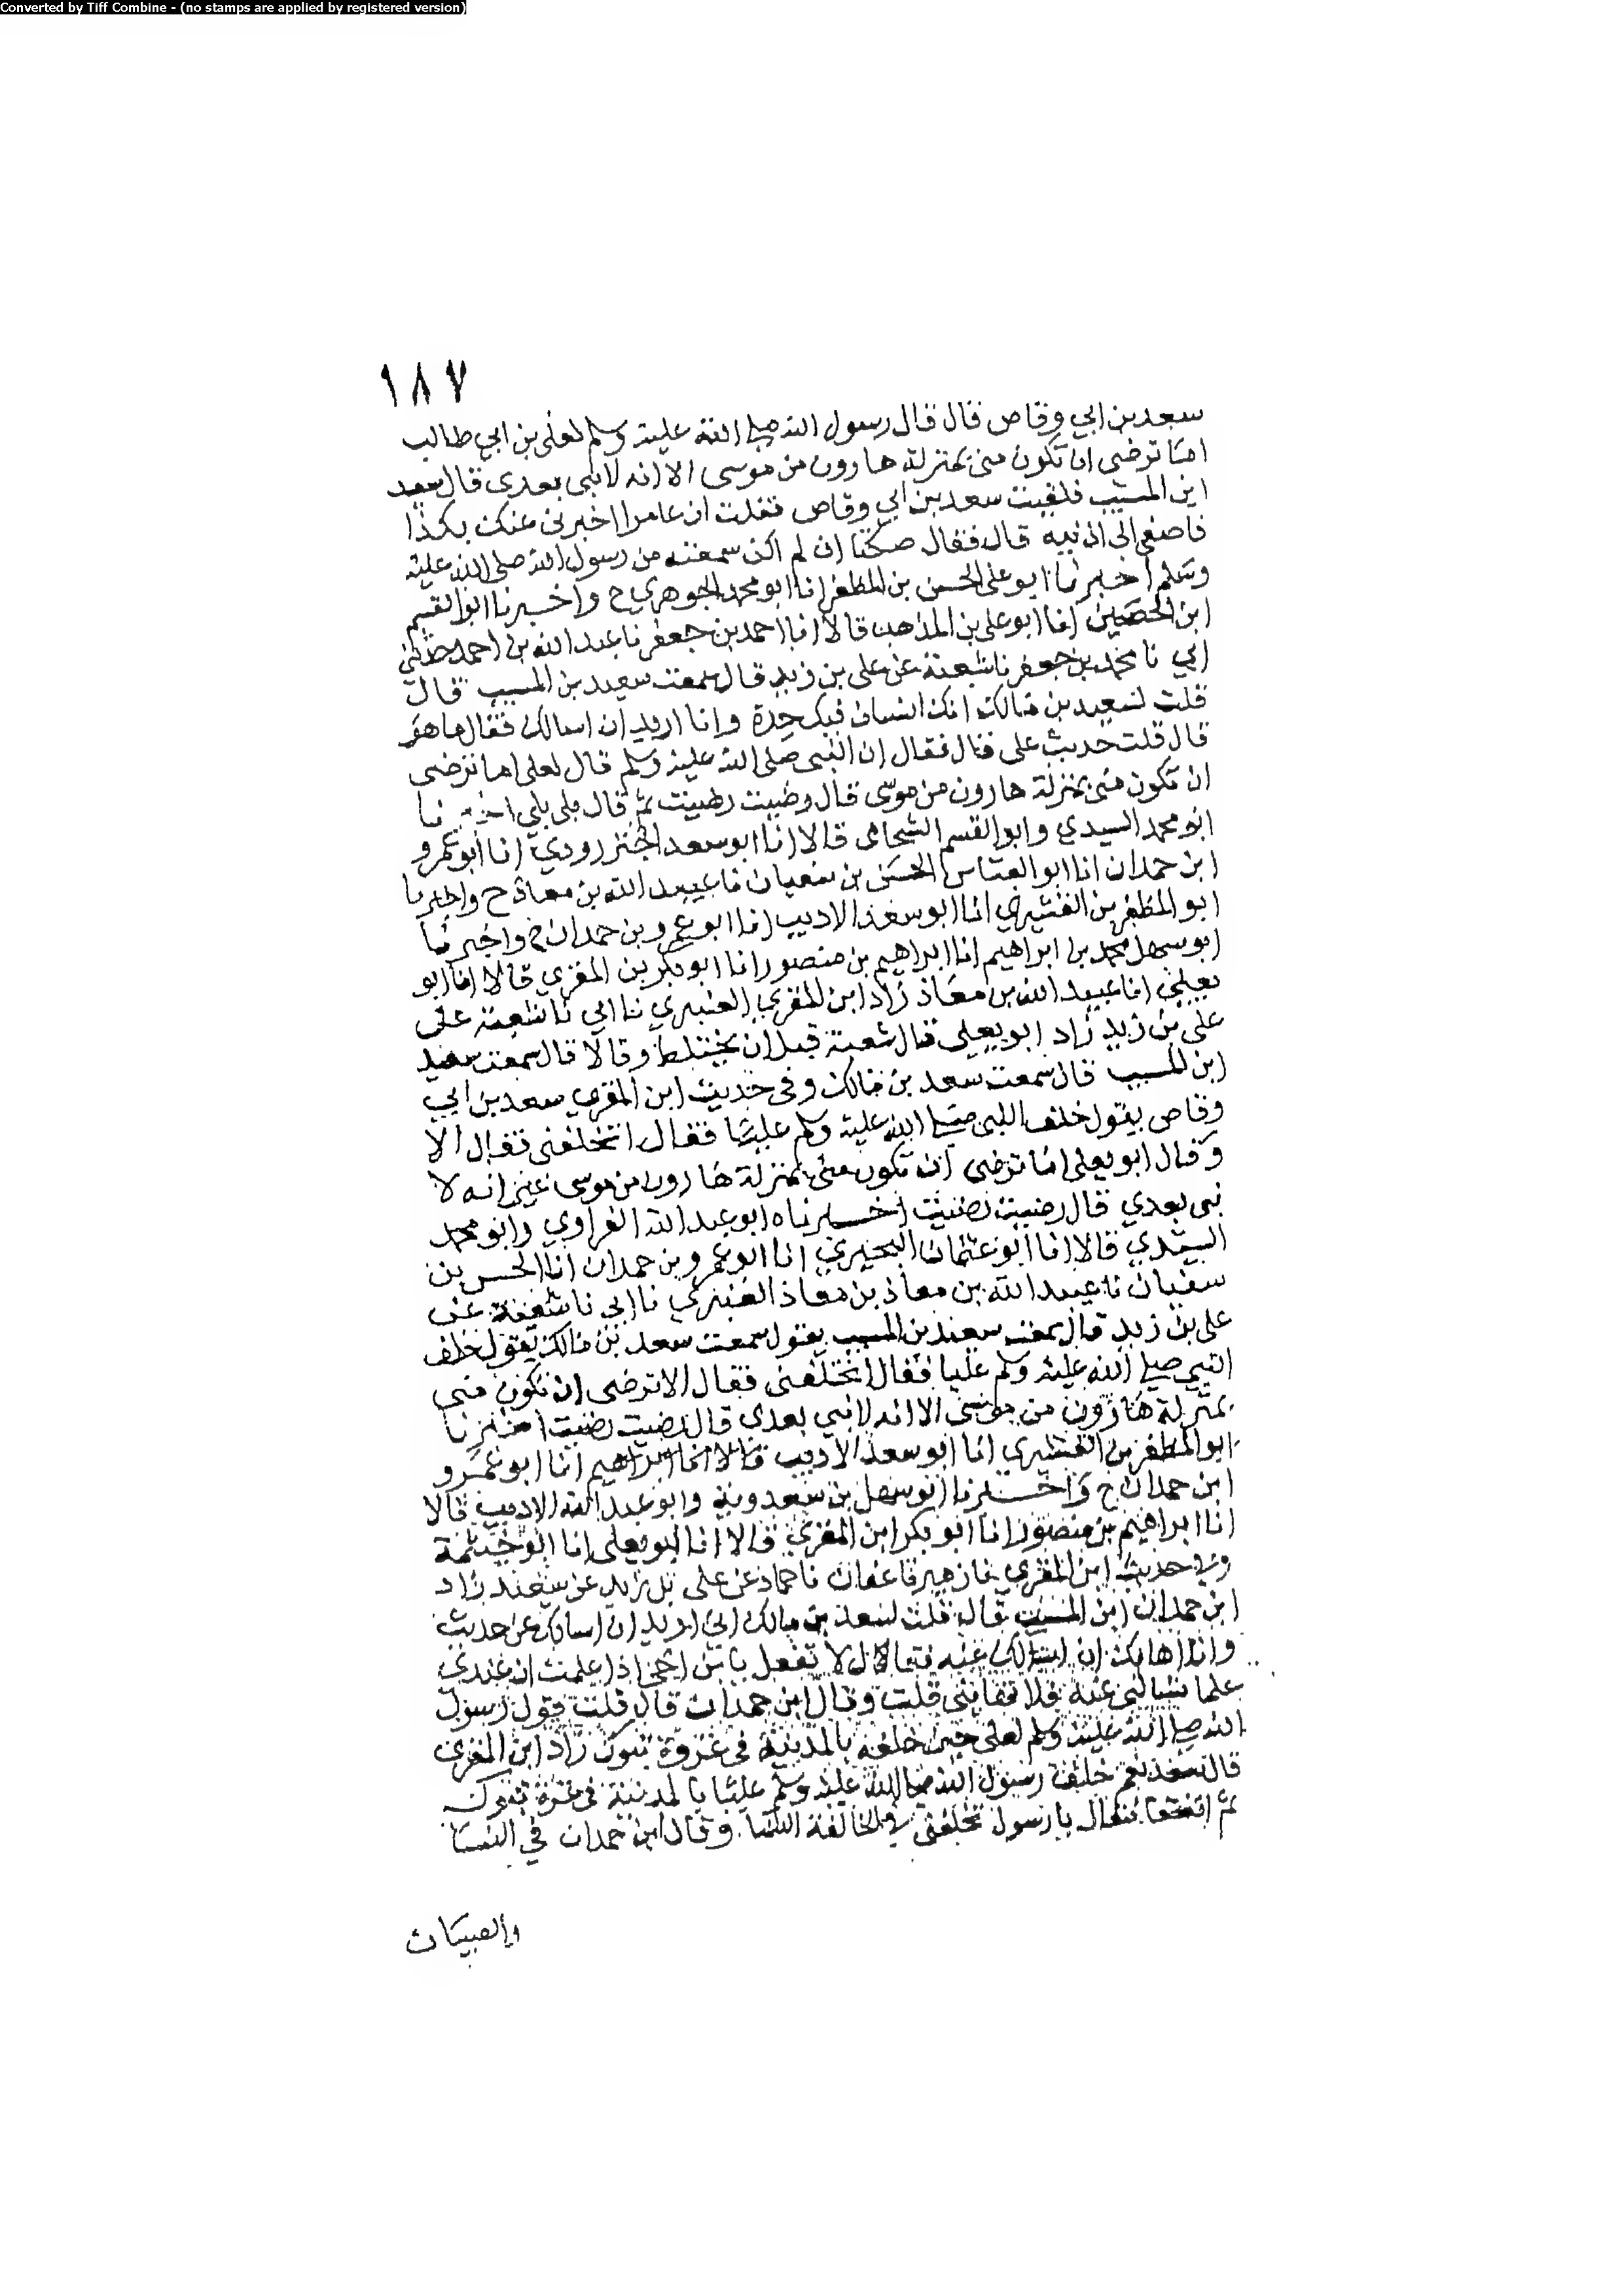 Converted by Tiff Combine - (no stamps are applied by registered version)
١٨٧
سعد بن ابي وقاص قال قال رسول الله صلى الله عليه وسلم لعلى بن ابي طالب
اما ترضى ان تكون منى بمنزلة هارون من موسى الا انه لا نبي بعدى قال سعيد
ابن المسيب فلقيت سعد بن ابي وقاص فقلت ان عامرا اخبرنى عنك بكذا
فاصغى الى اذنيه قال فقال صكتا ان لم اكن سمعته من رسول الله صلى الله عليه
وسلم اخبرنا ابو على الحسن بن المظفر انا ابو محمد الجوهري ح واخبرنا ابو القسم
ابن الحصين انا ابو على بن المذهب قالا انا احمد بن جعفر نا عبد الله بن احمد حدثني
ابي نا محمد بن جعفر نا شعبة عن على بن زيد قال سمعت سعيد بن المسيب قال
قلت لسعيد بن مالك انك انسان فيك حدة وانا اريد ان اسالك فقال ما هو
قال قلت حديث على قال فقال ان النبى صلى الله عليه وسلم قال لعلى اما ترضى
ان تكون منى بمنزلة هارون من موسى قال رضيت رضيت ثم قال بلى بلى اخبرنا
ابو محمد السيدي وابو القسم الشحامى قالا انا ابو سعد الجنزرودي انا ابو عمرو
ابن حمدان انا ابو العباس الحسن بن سفيان نا عبيد الله بن معاذ ح واخبرنا
ابو المظفر بن القشيري انا ابو سعد الاديب انا ابو عمرو بن حمدان ح واخبرنا
ابو سهل محمد بن ابراهيم انا ابراهيم بن منصور انا ابو بكر بن المقري قالا انا ابو
يعلى انا عبيد الله بن معاذ زاد ابن المقري العنبري نا ابي نا شعبة عن
على بن زيد زاد ابو يعلى قال شعبة قبل ان يختلط وقالا قال سمعت سعيد
ابن المسيب قال سمعت سعد بن مالك وفى حديث ابن المقري سعد بن ابي
وقاص يقول خلف النبى صلى الله عليه وسلم عليا فقال اتخلفنى فقال الا
وقال ابو يعلى اما ترضى ان تكون منى بمنزلة هارون من موسى غير انه لا
نبى بعدي قال رضيت رضيت اخبرناه ابو عبد الله الفراوي وابو محمد
السيدي قالا انا ابو عثمان البحيري انا ابو عمرو بن حمدان انا الحسن بن
سفيان نا عبيد الله بن معاذ بن معاذ العنبري نا ابى نا شعبة عن
على بن زيد قال سمعت سعيد بن المسيب يقول سمعت سعد بن مالك يقول خلف
النبي صلى الله عليه وسلم عليا فقال اتخلفنى فقال الا ترضى ان تكون منى
بمنزلة هارون من موسى الا انه لا نبي بعدى قال رضيت رضيت اخبرنا
ابو المظفر بن القشيرى انا ابو سعد الاديب قالا انا ابراهيم انا ابو عمرو
ابن حمدان ح واخبرنا ابو سهل بن سعدوية وابو عبد الله الاديب قالا
انا ابراهيم بن منصور انا ابو بكر ابن المقري قالا انا ابو يعلى انا ابو خيثمة
وفي حديث ابن المقري نا زهير نا عفان نا حماد عن على بن زيد عن سعيد زاد
ابن حمدان ابن المسيب قال قلت لسعد بن مالك اني اريد ان اسالك عن حديث
وانا اهابك ان اسالك عنه فقال لا تفعل يا بن اخي اذا علمت ان عندي
علما فسالنى عنه فلا تهابنى قلت وقال ابن حمدان قال قلت قول رسول
الله صلى الله عليه وسلم لعلى حين خلفه بالمدينة فى غزوة تبوك زاد ابن المقري
قال سعد نعم خلف رسول الله صلى الله عليه وسلم عليا بالمدينة فى غزوة تبوك
ثم اتفقا فقال يا رسول تخلفنى في الخالفة النسا وقال ابن حمدان في النسا
والصبيان